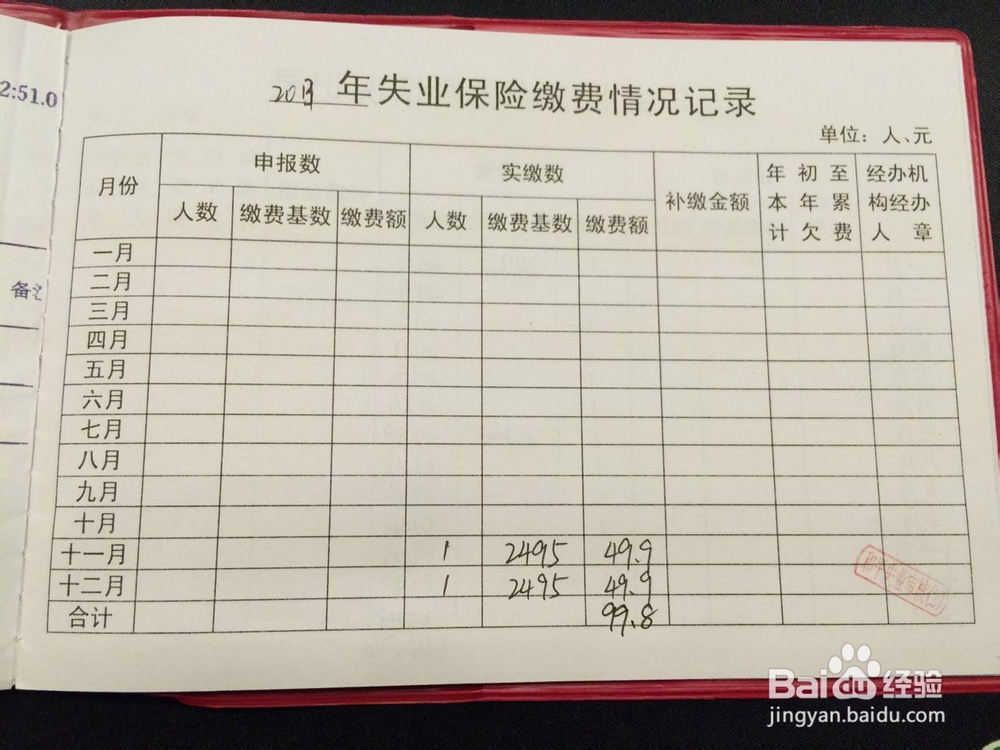 2:51.0
备注
2013年失业保险缴费情况记录
单位：人、元
月份 申报数 实缴数 补缴金额 年初至本年累计欠费 经办机构经办人章
人数 缴费基数 缴费额 人数 缴费基数 缴费额
一月
二月
三月
四月
五月
六月
七月
八月
九月
十月
十一月 1 2495 49.9
十二月 1 2495 49.9
合计 99.8
Baidu经验
jingyan.baidu.com